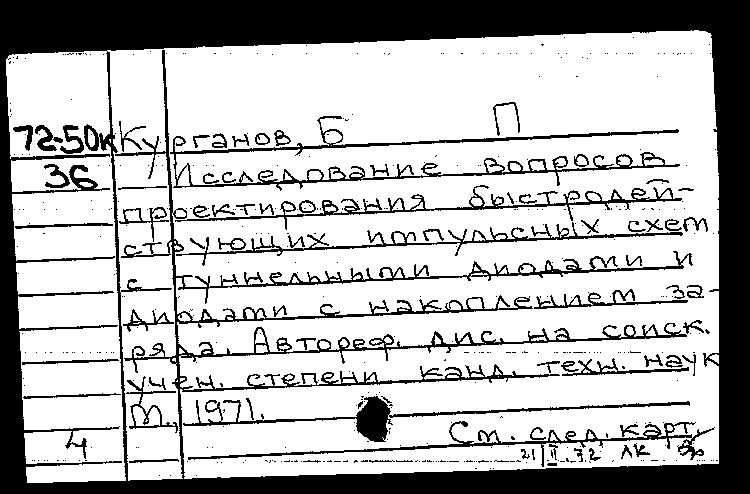 72-50к Курганов, Б П
36 Исследование вопросов
проектирования быстродей-
ствующих импульсных схем
с туннельными диодами и
диодами с накоплением за-
ряда. Автореф. дис. на соиск.
учен. степени канд. техн. наук
М., 1971.
4 См. след. карт.
21/II.72 ЛК